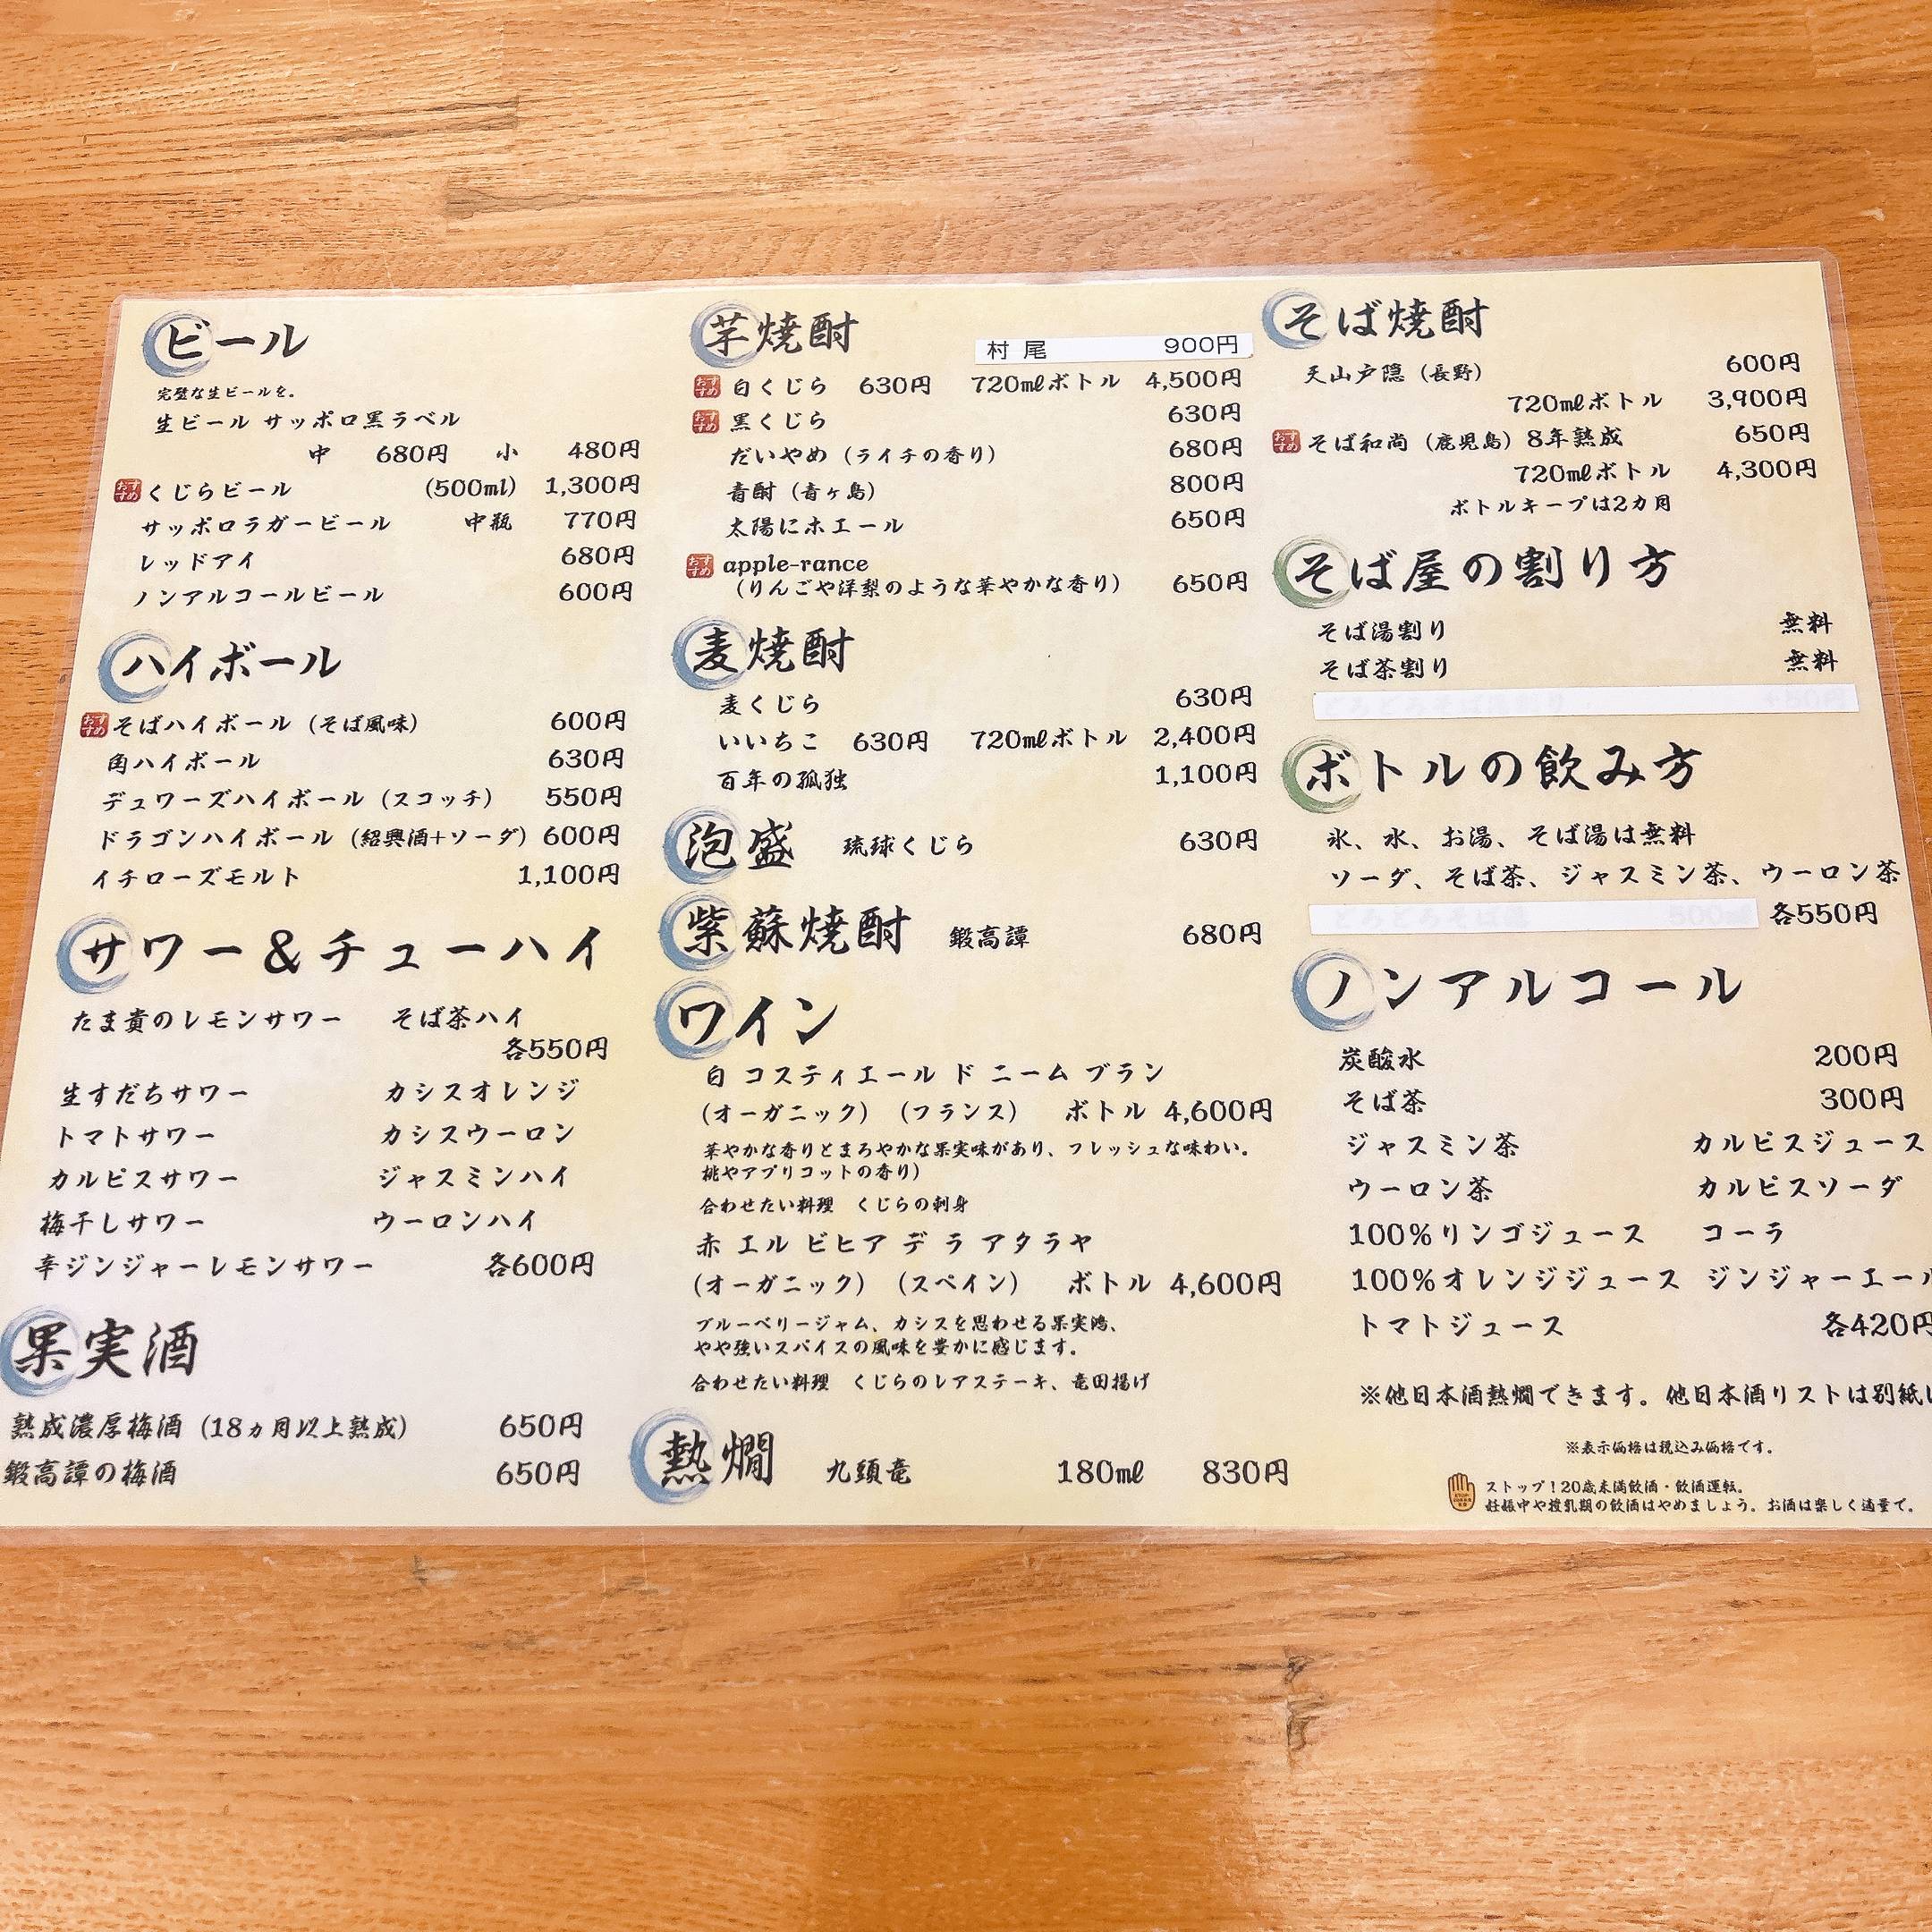 ビール
完璧な生ビールを。
生ビール サッポロ黒ラベル
中 680円 小 480円
おすすめ くじらビール (500ml) 1,300円
サッポロラガービール 中瓶 770円
レッドアイ 680円
ノンアルコールビール 600円
ハイボール
おすすめ そばハイボール（そば風味） 600円
角ハイボール 630円
デュワーズハイボール（スコッチ） 550円
ドラゴンハイボール（紹興酒+ソーダ） 600円
イチローズモルト 1,100円
サワー＆チューハイ
たま貴のレモンサワー そば茶ハイ
各550円
生すだちサワー カシスオレンジ
トマトサワー カシスウーロン
カルピスサワー ジャスミンハイ
梅干しサワー ウーロンハイ
辛ジンジャーレモンサワー 各600円
果実酒
熟成濃厚梅酒（18ヵ月以上熟成） 650円
鍛高譚の梅酒 650円
芋焼酎
村尾 900円
おすすめ 白くじら 630円 720mlボトル 4,500円
おすすめ 黒くじら 630円
だいやめ（ライチの香り） 680円
青酎（青ヶ島） 800円
太陽にホエール 650円
おすすめ apple-rance
（りんごや洋梨のような華やかな香り） 650円
麦焼酎
麦くじら 630円
いいちこ 630円 720mlボトル 2,400円
百年の孤独 1,100円
泡盛 琉球くじら 630円
紫蘇焼酎 鍛高譚 680円
ワイン
白 コスティエール ド ニーム ブラン
（オーガニック）（フランス） ボトル 4,600円
華やかな香りとまろやかな果実味があり、フレッシュな味わい。
桃やアプリコットの香り）
合わせたい料理 くじらの刺身
赤 エル ビヒア デ ラ アタラヤ
（オーガニック）（スペイン） ボトル 4,600円
ブルーベリージャム、カシスを思わせる果実鴻、
やや強いスパイスの風味を豊かに感じます。
合わせたい料理 くじらのレアステーキ、竜田揚げ
熱燗 九頭竜 180ml 830円
そば焼酎
天山戸隠（長野） 600円
720mlボトル 3,900円
おすすめ そば和尚（鹿児島）8年熟成 650円
720mlボトル 4,300円
ボトルキープは2カ月
そば屋の割り方
そば湯割り 無料
そば茶割り 無料
ボトルの飲み方
氷、水、お湯、そば湯は無料
ソーダ、そば茶、ジャスミン茶、ウーロン茶
各550円
ノンアルコール
炭酸水 200円
そば茶 300円
ジャスミン茶 カルピスジュース
ウーロン茶 カルピスソーダ
100%リンゴジュース コーラ
100%オレンジジュース ジンジャーエール
トマトジュース 各420円
※他日本酒熱燗できます。他日本酒リストは別紙
※表示価格は税込み価格です。
ストップ！20歳未満飲酒・飲酒運転。
妊娠中や授乳期の飲酒はやめましょう。お酒は楽しく適量で。